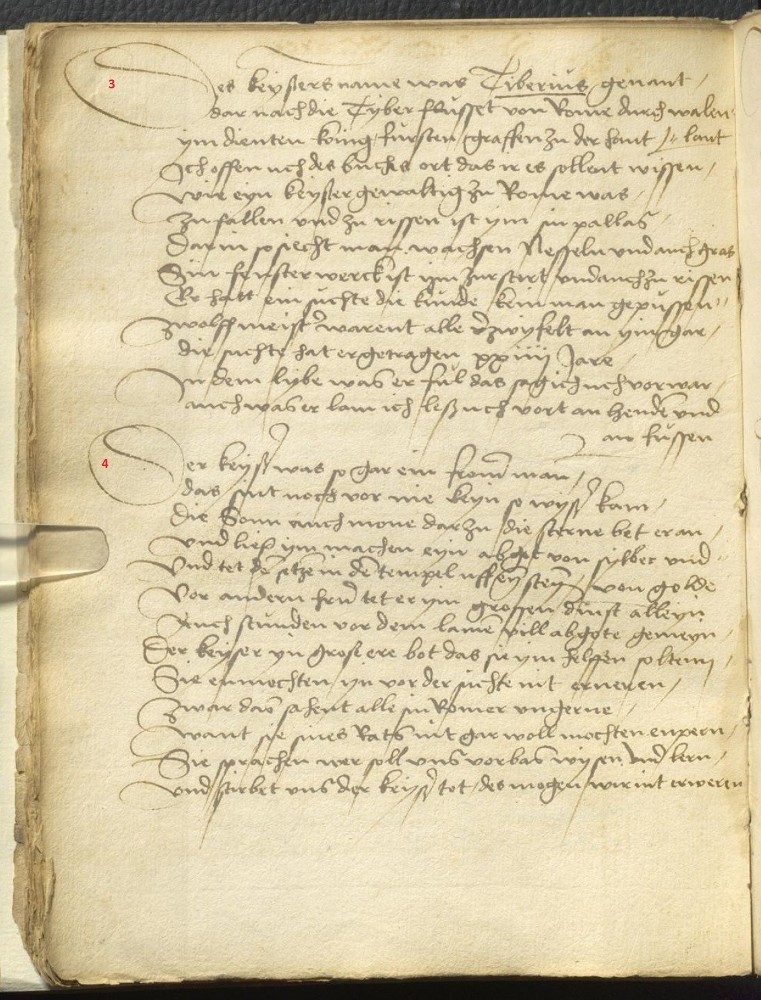 3
Des keyßers name was Tiberius genant /
dar nach die Tyber flusset von Rome durch walen
ym dienten konig fursten graffen zu der hant / lant
Ich offen uch des buchs ort das ir es sollent wissen /
wie eyn keyßer gewaltig zu Rome was /
zu fallen und zu rissen ist ym sin pallas
Dar in so siecht man wachsen Nesseln und auch gras
Sin fenster werck ist ym zurstort und auch zu rissen
Er hatt ein suchte die kunde kein man gepussen
zwolff meister warent alle verzwyfelt an ym gar /
die suchte hat er getragen xxiiii Jare /
In dem lybe was er ful das sag ich uch vorwar /
auch was er lam ich leß uch vort an henden und
an fussen
4
Der keyßer was so gar ein from man /
das sint noch vor nie keyn so wyßer kam /
die Sonn auch mone dar zu die sterne bet er an /
und ließ ym machen eyn abgot von sylber und
Und tet den setzen in den tempel uff eyn steyn / von golde
Vor andern tet er ym grossen dinst alleyn
Auch stunden vor dem lamen vill abgote gemeyn /
Der keyser yn grosz ere bot das sie ym helffen solten /
Sie enmochten yn vor der suchte nit erneren /
zwar das sahent alle sin Romer ungerne /
want sie sines Rats nit gar woll mochten enpern /
Sie sprachen wer soll uns vorbas wysen und lern /
und stirbet uns der keyßer tot / des mogen wir nit erweren